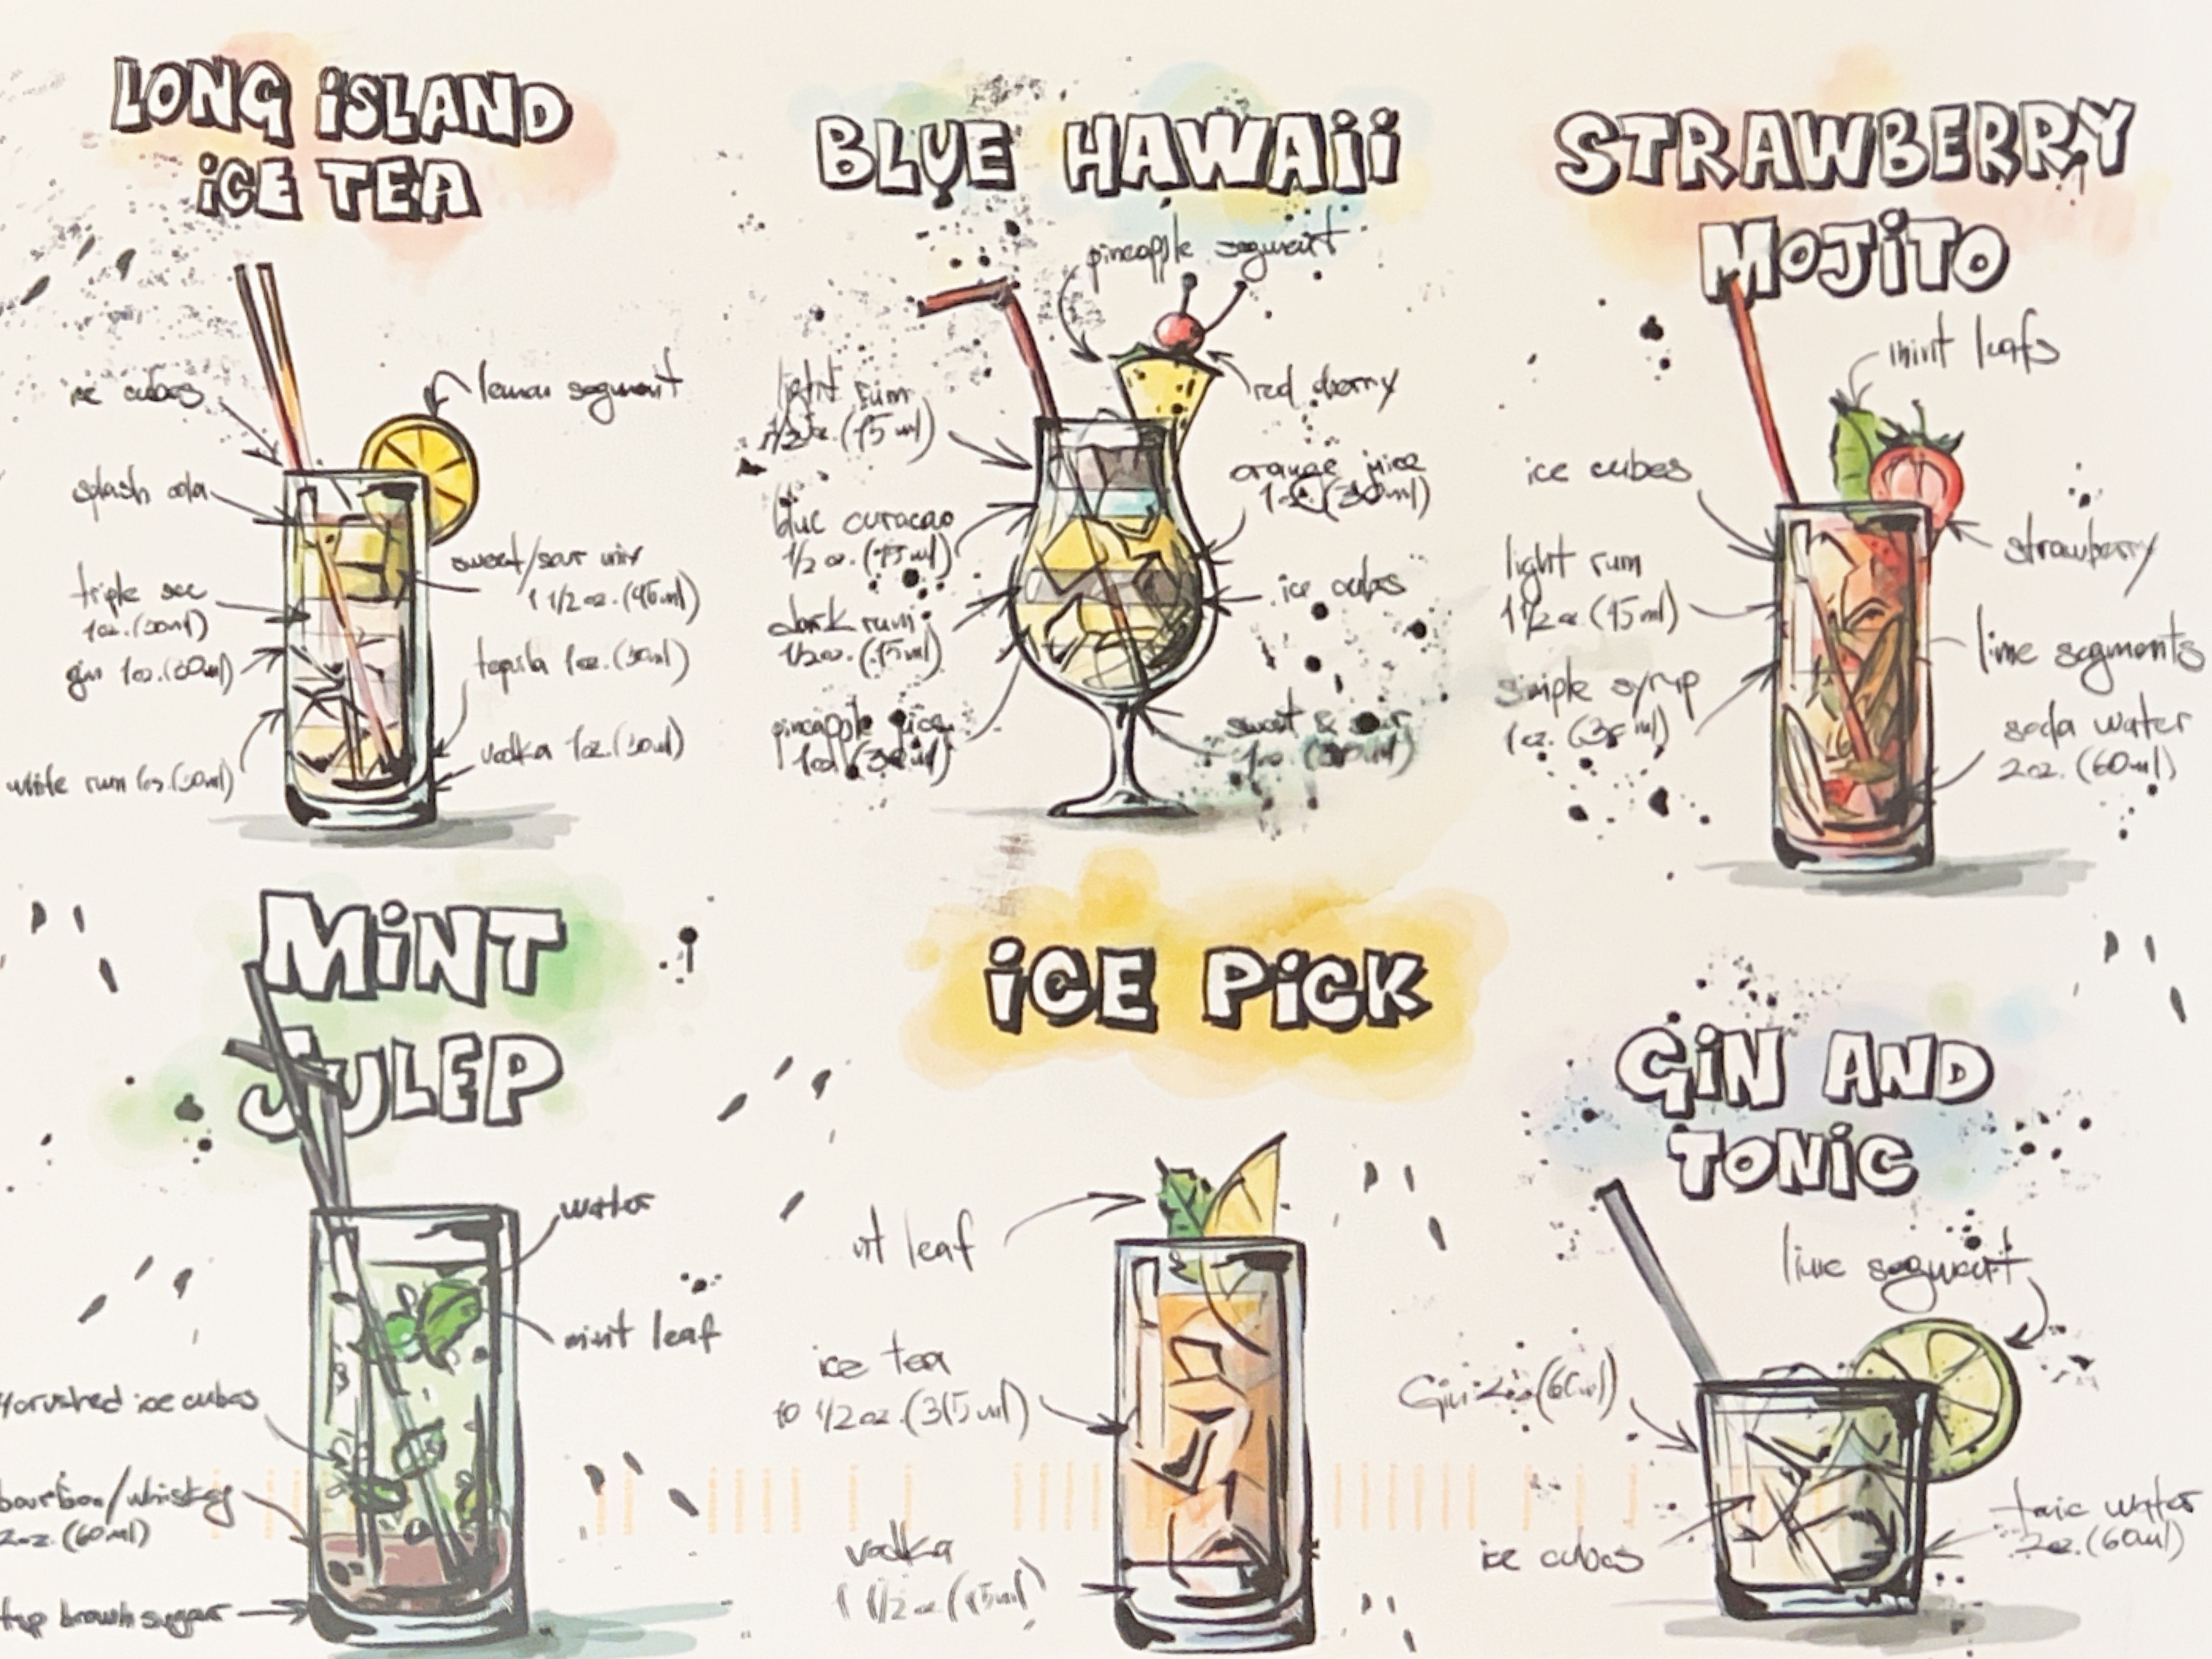 LONG ISLAND
ICE TEA
ice cubes
lemon segment
splash cola
sweet/sour mix
1 1/2 oz. (45ml)
triple sec
1oz. (30ml)
gin 1oz. (30ml)
tequila 1oz. (30ml)
white rum 1oz. (30ml)
vodka 1oz. (30ml)
BLUE HAWAII
pineapple segment
light rum
1/2 oz. (15 ml)
red cherry
orange juice
1oz. (30ml)
blue curacao
1/2 oz. (15 ml)
ice cubes
dark rum
1/2oz. (15ml)
pineapple juice
1oz. (30ml)
sweet & sour
1oz. (30ml)
STRAWBERRY
MOJITO
mint leafs
ice cubes
strawberry
light rum
1 1/2 oz (45 ml)
lime segments
simple syrup
1oz. (30 ml)
soda water
2oz. (60ml)
MINT
JULEP
water
mint leaf
crushed ice cubes
bourbon/whiskey
2oz. (60ml)
tsp brown sugar
ICE PICK
nt leaf
ice tea
10 1/2 oz. (315 ml)
vodka
1 1/2 oz (45ml)
GIN AND
TONIC
lime segment
Gin 2oz (60ml)
ice cubes
tonic water
2oz. (60ml)